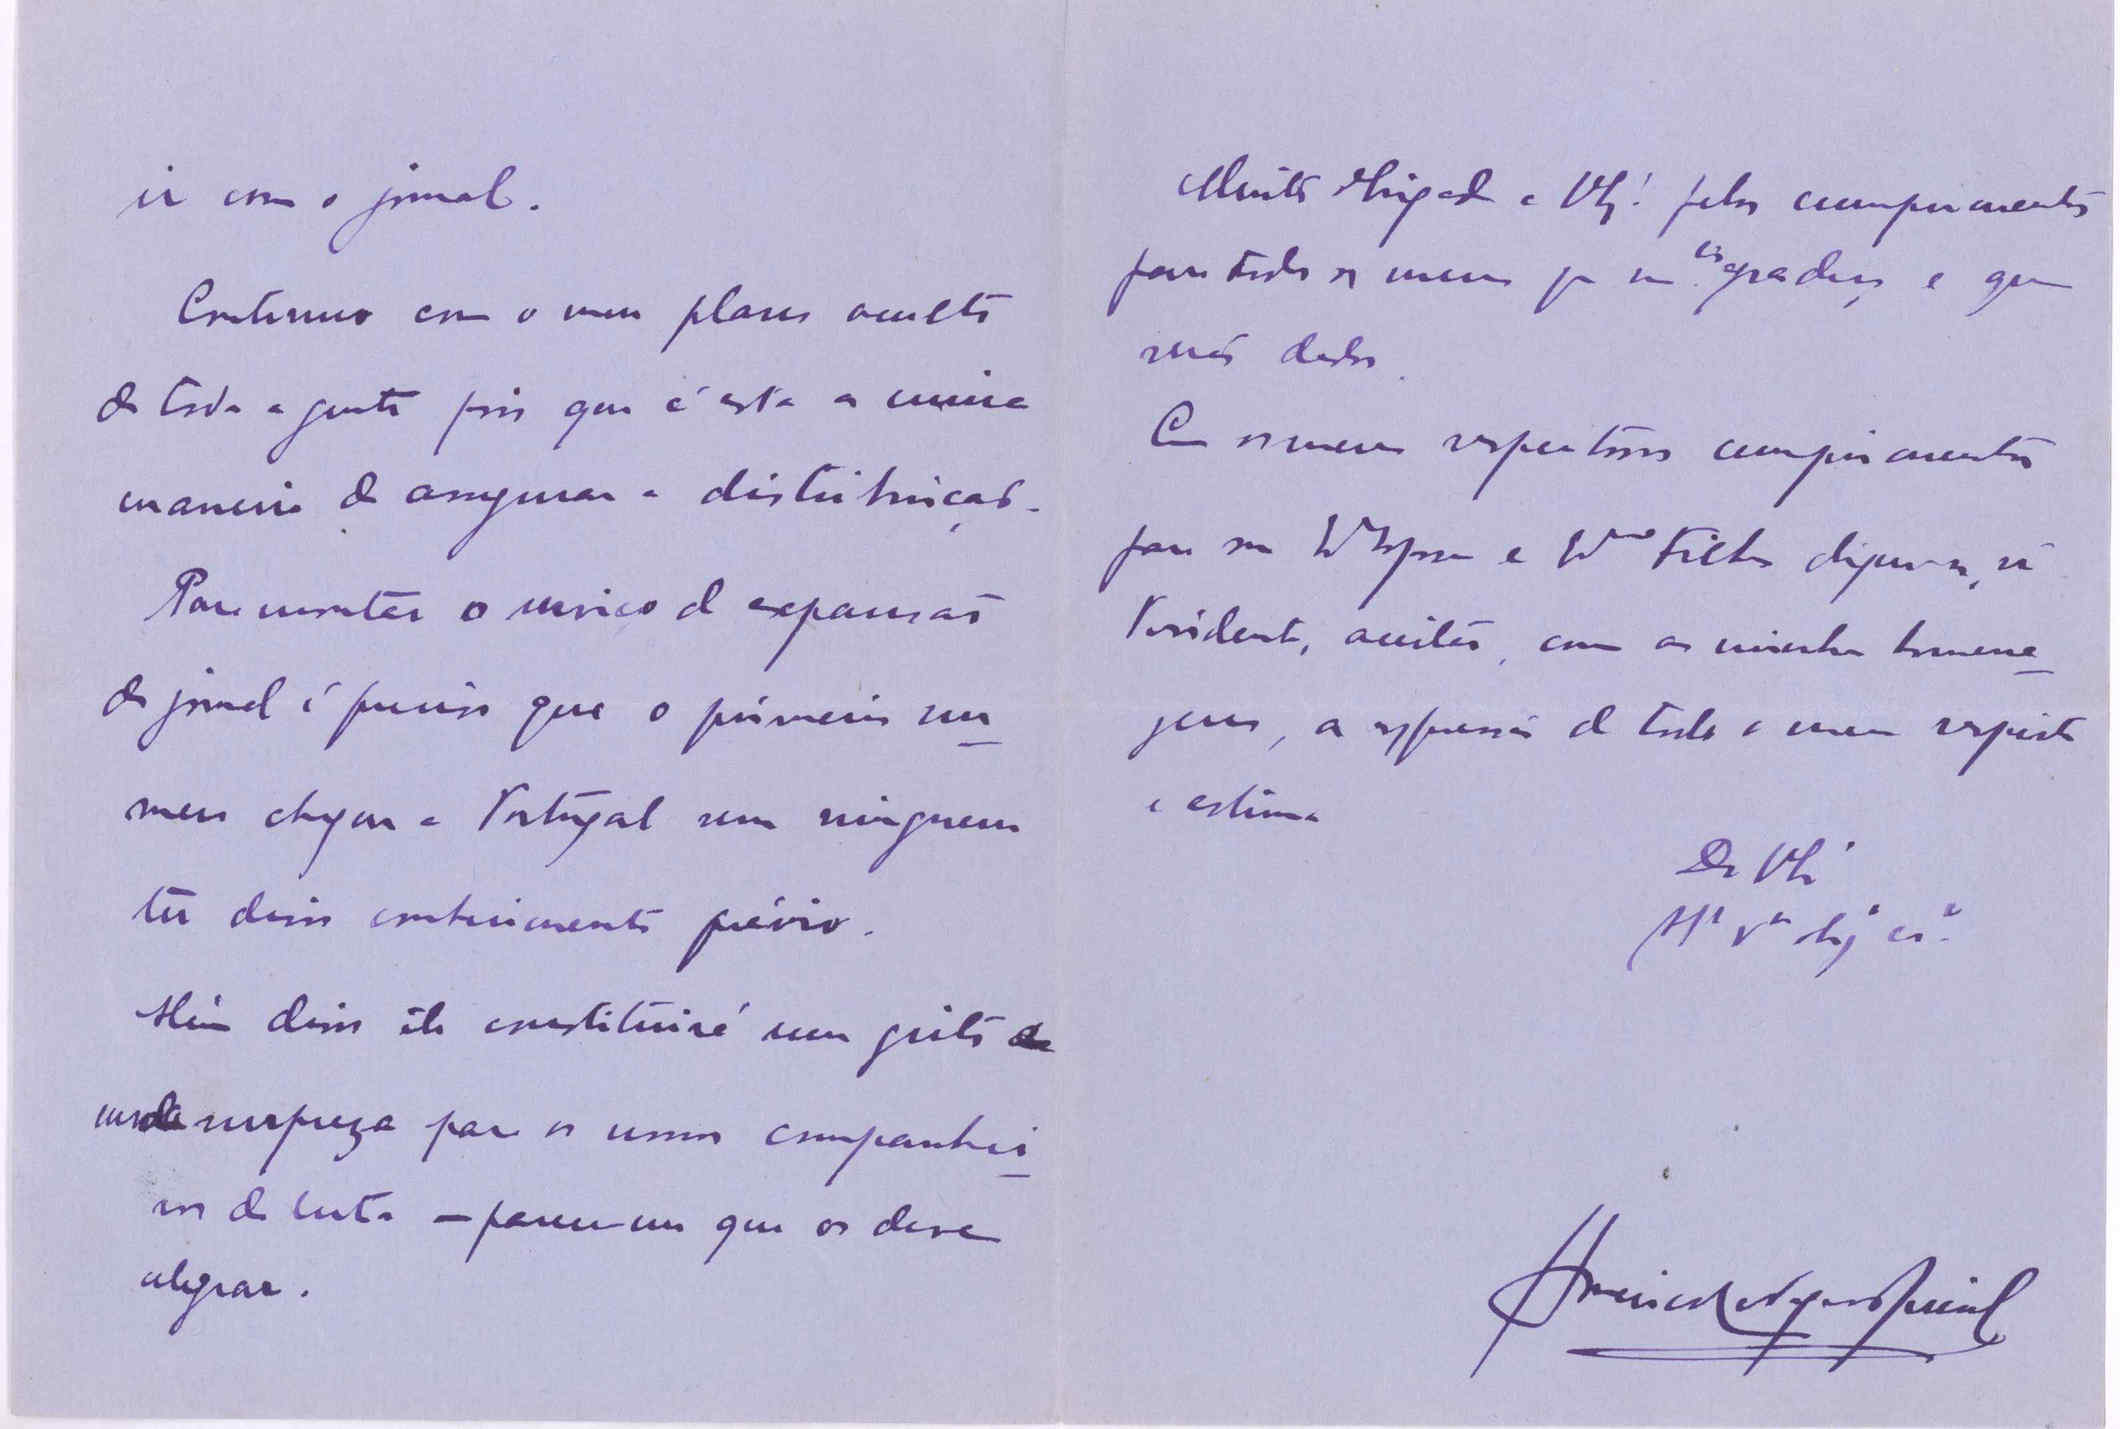 ir com o jornal.
Continuo com o meu plano oculto
de toda a gente pois que é esta a unica
maneira de assegurar a distribuição.
Para montar o serviço de expansão
do jornal é preciso que o primeiro nu-
mero chegue a Portugal sem ninguem
ter disso conhecimento prévio.
Além disso êle constituirá um grito de
surpreza para os nossos companhei-
ros de luta — parece-me que os deve
alegrar.
Muito obrigado a V. Ex.ª pelos cumprimentos
para todos os meus que m.to agradeço e que
serão dados.
Com os meus respeitosos cumprimentos
para sua Ex.ma Esposa e Ex.mo Filho digne-se, sr.
Presidente, aceitar, com as minhas homena-
gens, a expressão de todo o meu respeito
e estima
De V. Ex.ª
At.º V.or obg.º cr.º